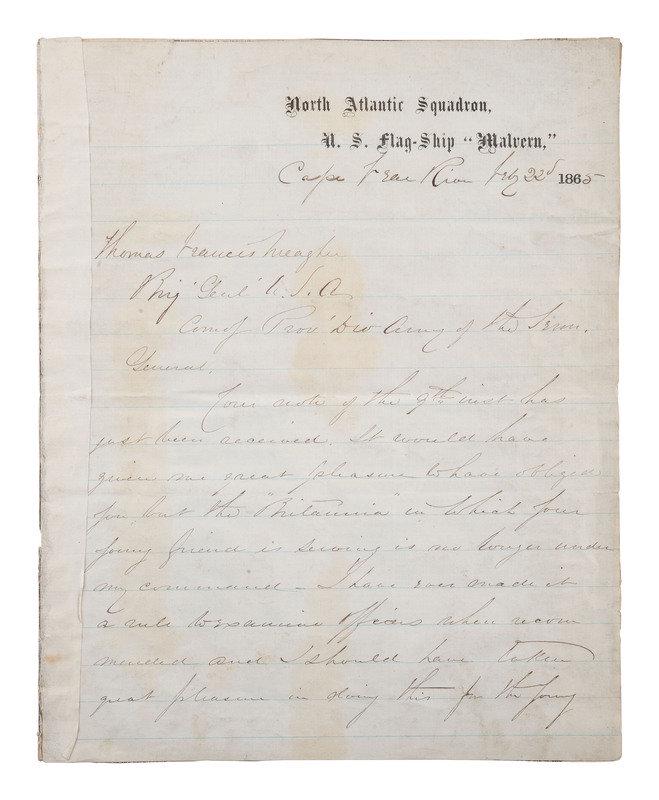 North Atlantic Squadron,
U. S. Flag-Ship "Malvern,"
Cape Fear River Feby 22d 1865
Thomas Francis Meagher
Brig' Genl' U. S. A.
Comdg Prov' Div Army of the Tenn.
General,
Your note of the 9th inst has
just been received. It would have
given me great pleasure to have obliged
you, but the "Britannia" in which your
young friend is serving is no longer under
my command - I have ever made it
a rule to examine officers when recom
mended and I should have taken
great pleasure in doing this for the young